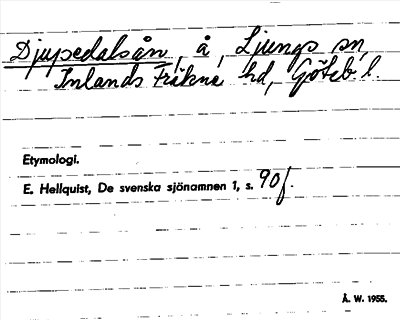 Djupedalsån, å, Ljungs sn,
Inlands Fräkne hd, Göteb l.
Etymologi.
E. Hellquist, De svenska sjönamnen 1, s. 90f.
Å. W. 1955.